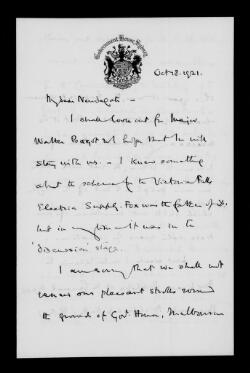 Government House, Sydney
Oct 8. 1921.
My dear Newdegate –
I shall look out for Major
Walter Bagot and hope that he will
stay with us. – I know something
about the scheme for the Victoria Falls
Electric Supply. Fox was the father of it,
but in my time it was in the
'discussion' stage.
I am sorry that we shall not
renew our pleasant strolls round
the grounds of Govt House, Melbourne